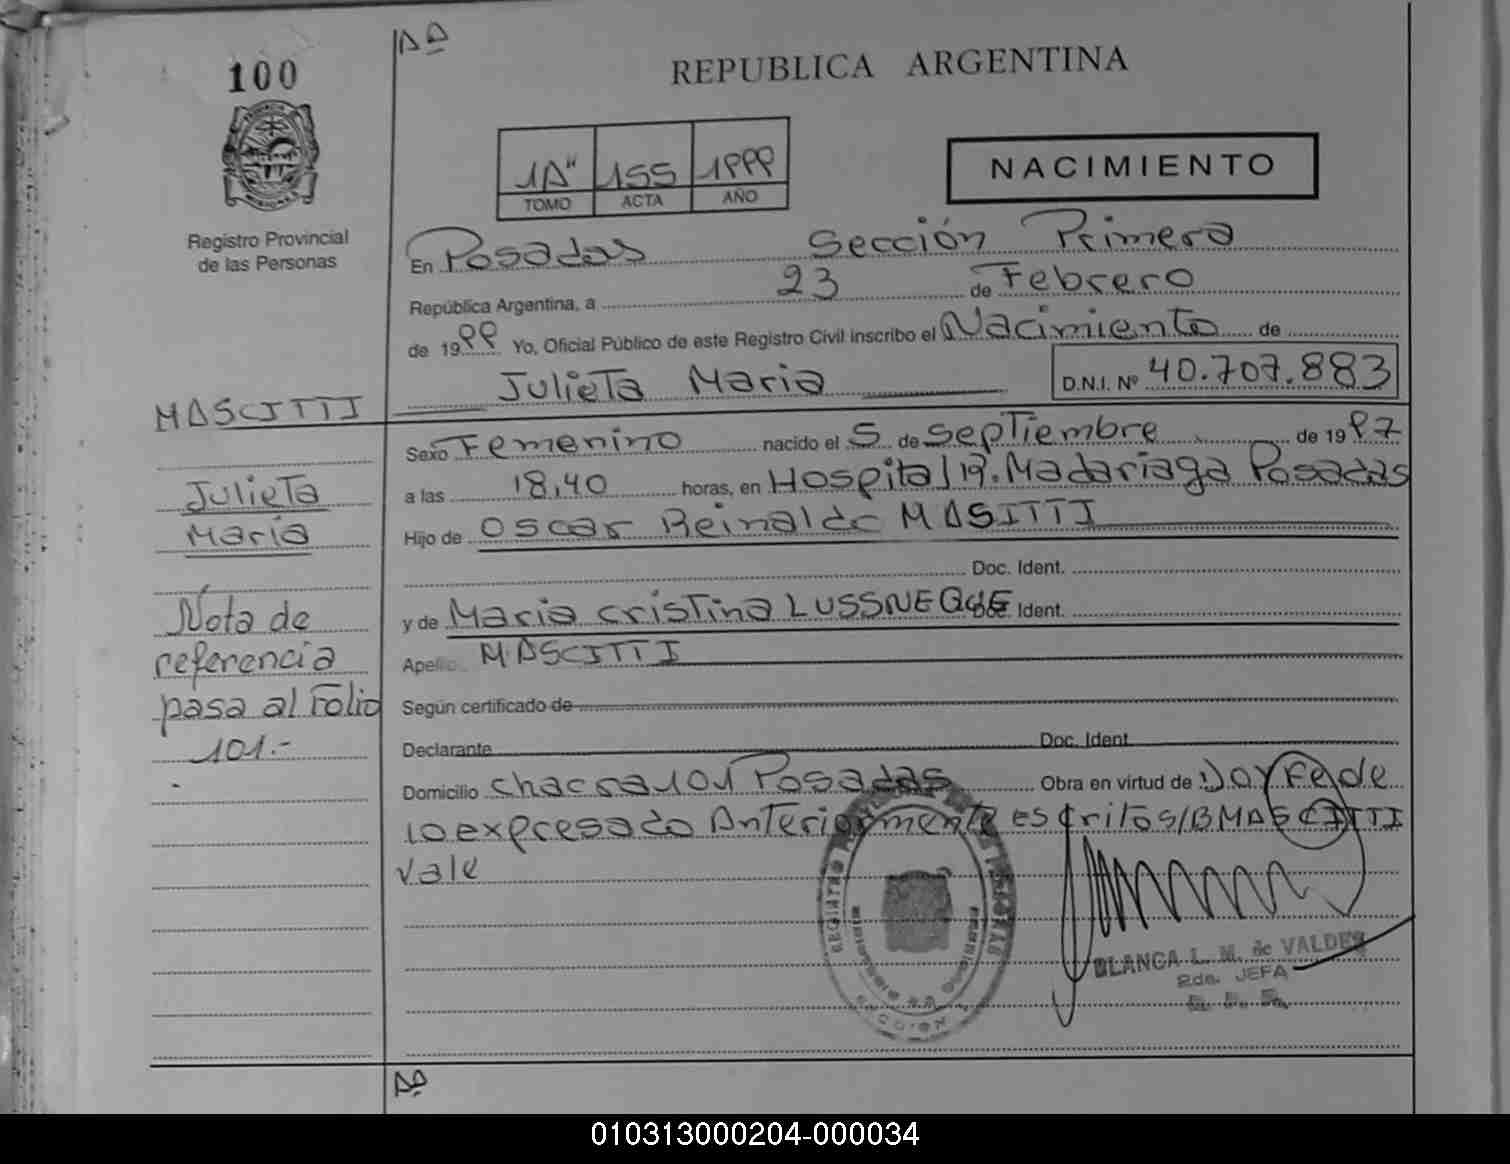 1Aª
100
REPUBLICA ARGENTINA
1A" 155 1999
TOMO ACTA AÑO
NACIMIENTO
Registro Provincial
de las Personas
En Posadas Sección Primera
República Argentina, a 23 de Febrero
de 1999 Yo, Oficial Público de este Registro Civil inscribo el Nacimiento de
Julieta Maria D.N.I. Nº 40.707.883
MASCITTI
Sexo Femenino nacido el 5 de septiembre de 1997
Julieta
a las 18,40 horas, en Hospital R. Madariaga Posadas
Maria
Hijo de Oscar Reinaldo MASITTI
Doc. Ident.
Nota de
y de Maria Cristina LUSSNEGGE Ident.
referencia
MASCITTI
pasa al Folio
Según certificado de
101.-
Declarante Doc. Ident
Domicilio chacra 101 Posadas Obra en virtud de Doy Fe de
lo expresado Anteriormente escritos/B MASCITTI
Vale
BLANCA L. M. de VALDEZ
2da. JEFA
010313000204-000034